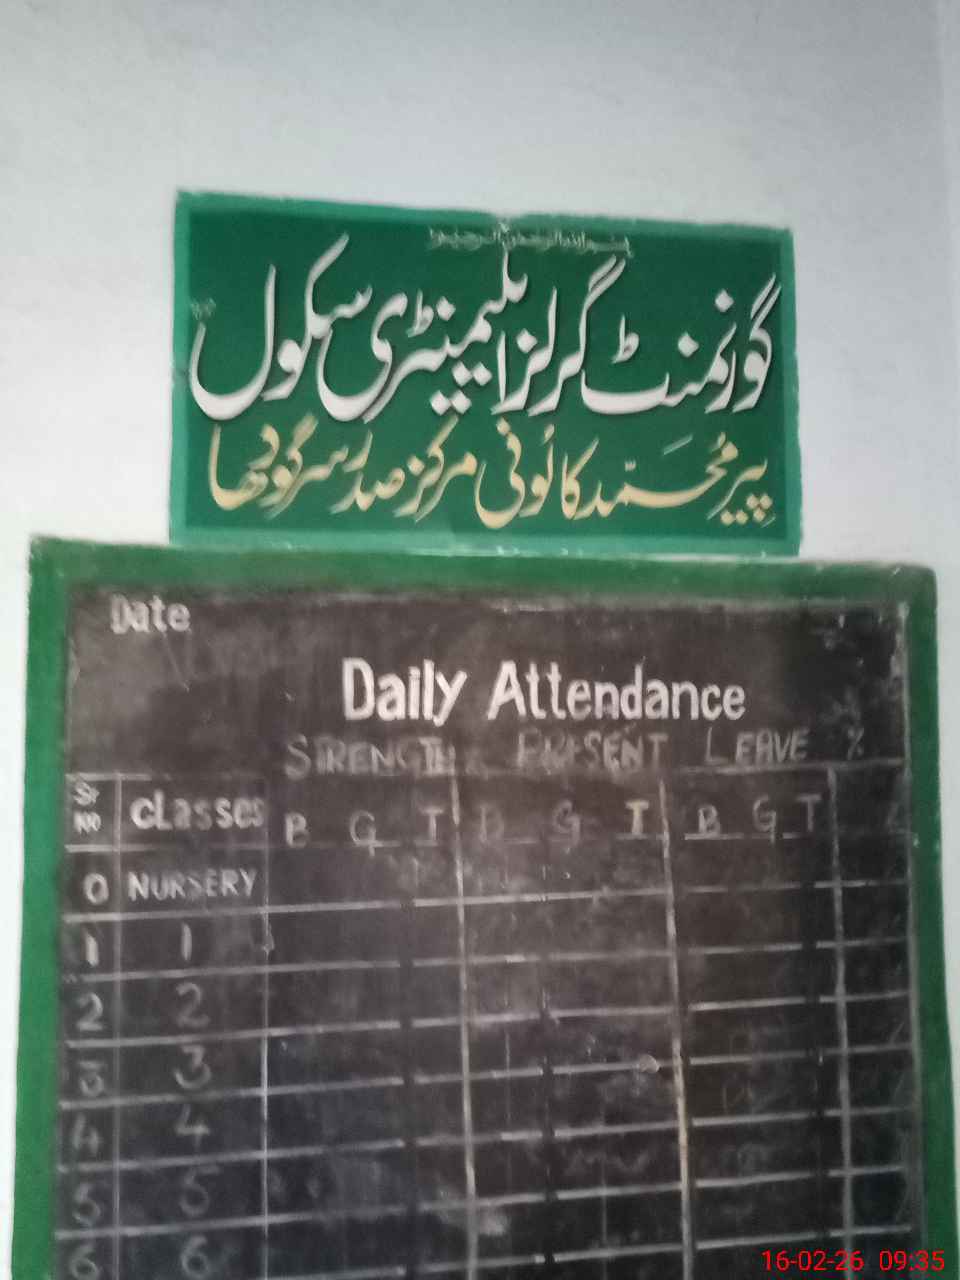 بسم اللہ الرحمن الرحیم
گورنمنٹ گرلز ایلیمنٹری سکول
پیر محمد کالونی مرکز صدر سرگودھا
Date
Daily Attendance
STRENGTH PRESENT LEAVE %
Sr No CLasses B G T B G T B G T
0 NURSERY
1 1
2 2
3 3
4 4
5 5
6 6
16-02-26 09:35